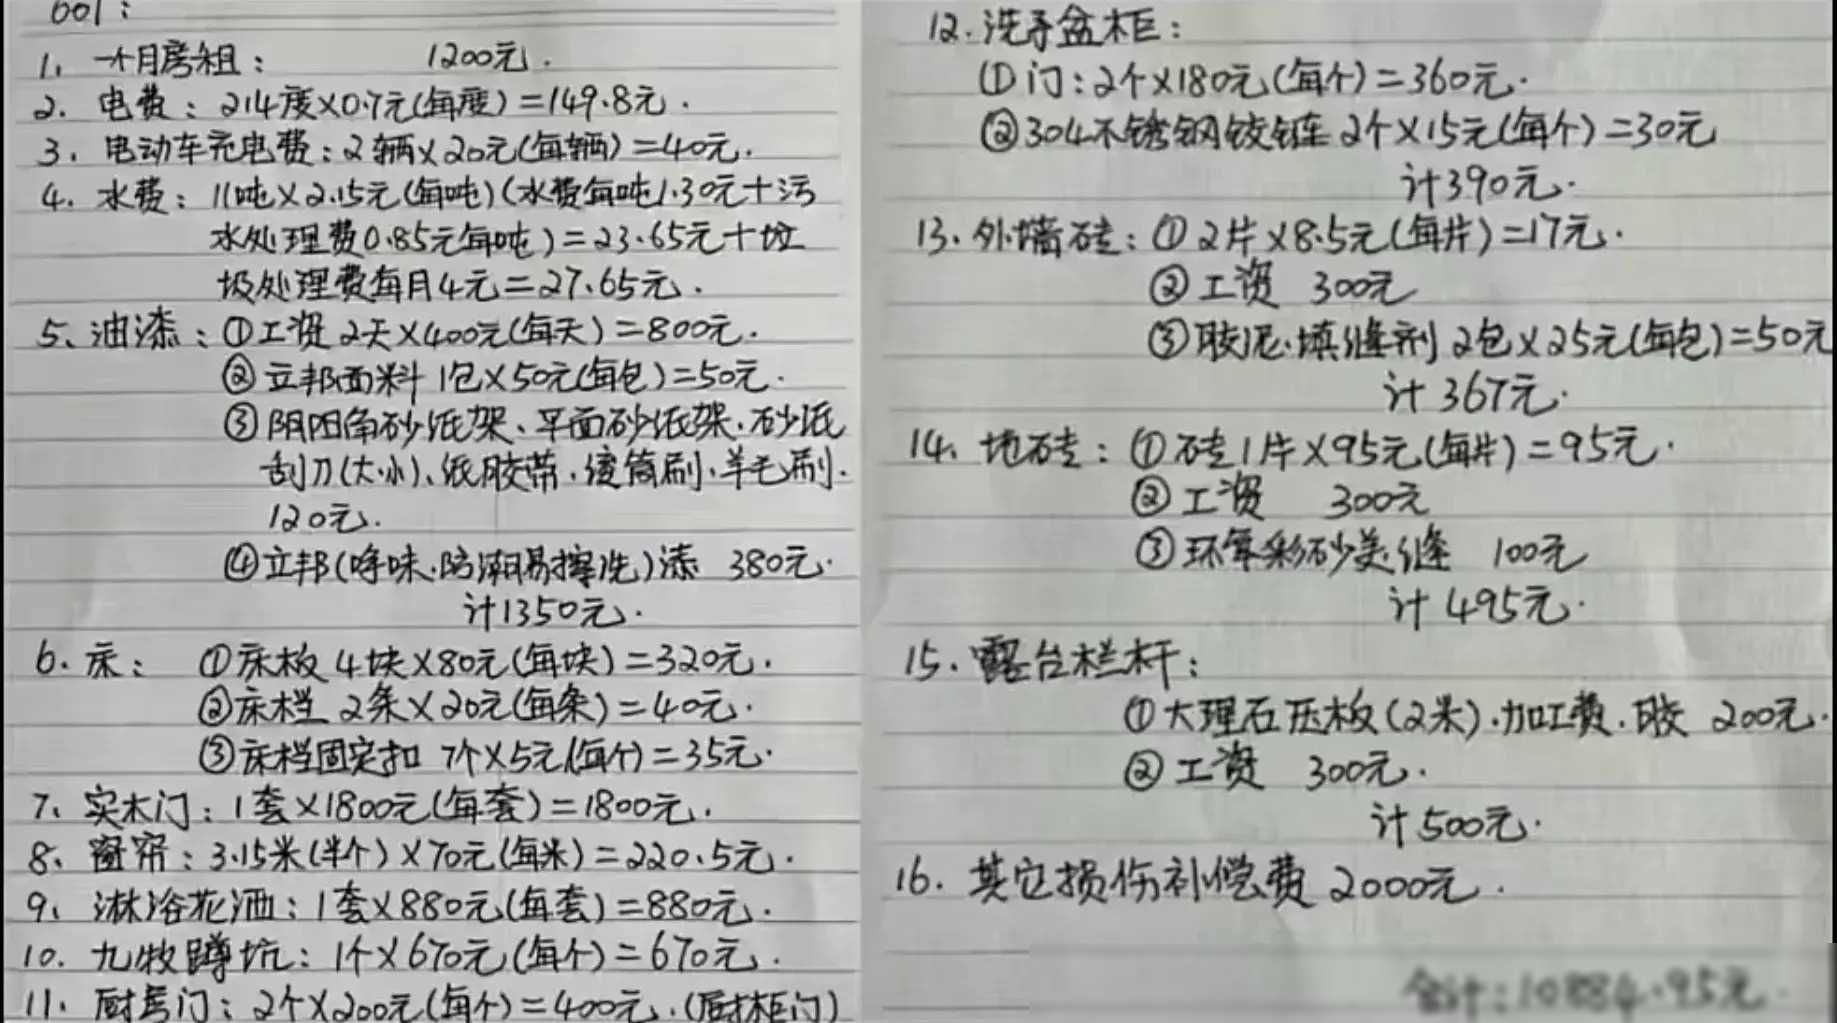 601：
1、一个月房租： 1200元.
2. 电费：214度×0.7元(每度)=149.8元.
3. 电动车充电费：2辆×20元(每辆)=40元.
4. 水费：11吨×2.15元(每吨)(水费每吨1.30元+污
水处理费0.85元每吨)=23.65元+垃
圾处理费每月4元=27.65元.
5、油漆：①工资2天×400元(每天)=800元.
②立邦面料 1包×50元(每包)=50元.
③阴阳角砂纸架、平面砂纸架.砂纸
刮刀(大.小)、纸胶带.滚筒刷.羊毛刷.
120元.
④立邦(净味.防潮易擦洗)漆 380元.
计1350元.
6. 床： ①床板 4块×80元(每块)=320元.
②床档 2条×20元(每条)=40元.
③床档固定扣 7个×5元(每个)=35元.
7、实木门：1套×1800元(每套)=1800元.
8、窗帘：3.15米(半个)×70元(每米)=220.5元.
9、淋浴花洒：1套×880元(每套)=880元.
10. 九牧蹲坑：1个×670元(每个)=670元.
11. 厨房门：2个×200元(每个)=400元.(厨柜门)
12. 洗手盆柜：
①门：2个×180元(每个)=360元.
②304不锈钢铰链 2个×15元(每个)=30元
计390元.
13. 外墙砖：①2片×8.5元(每片)=17元.
②工资 300元
③胶泥.填缝剂 2包×25元(每包)=50元
计367元.
14. 地砖：①砖1片×95元(每片)=95元.
②工资 300元
③环氧彩砂美缝 100元
计495元.
15. 露台栏杆：
①大理石压板(2米).加工费.胶 200元.
②工资 300元.
计500元.
16. 其它损伤补偿费2000元.
合计：10884.95元